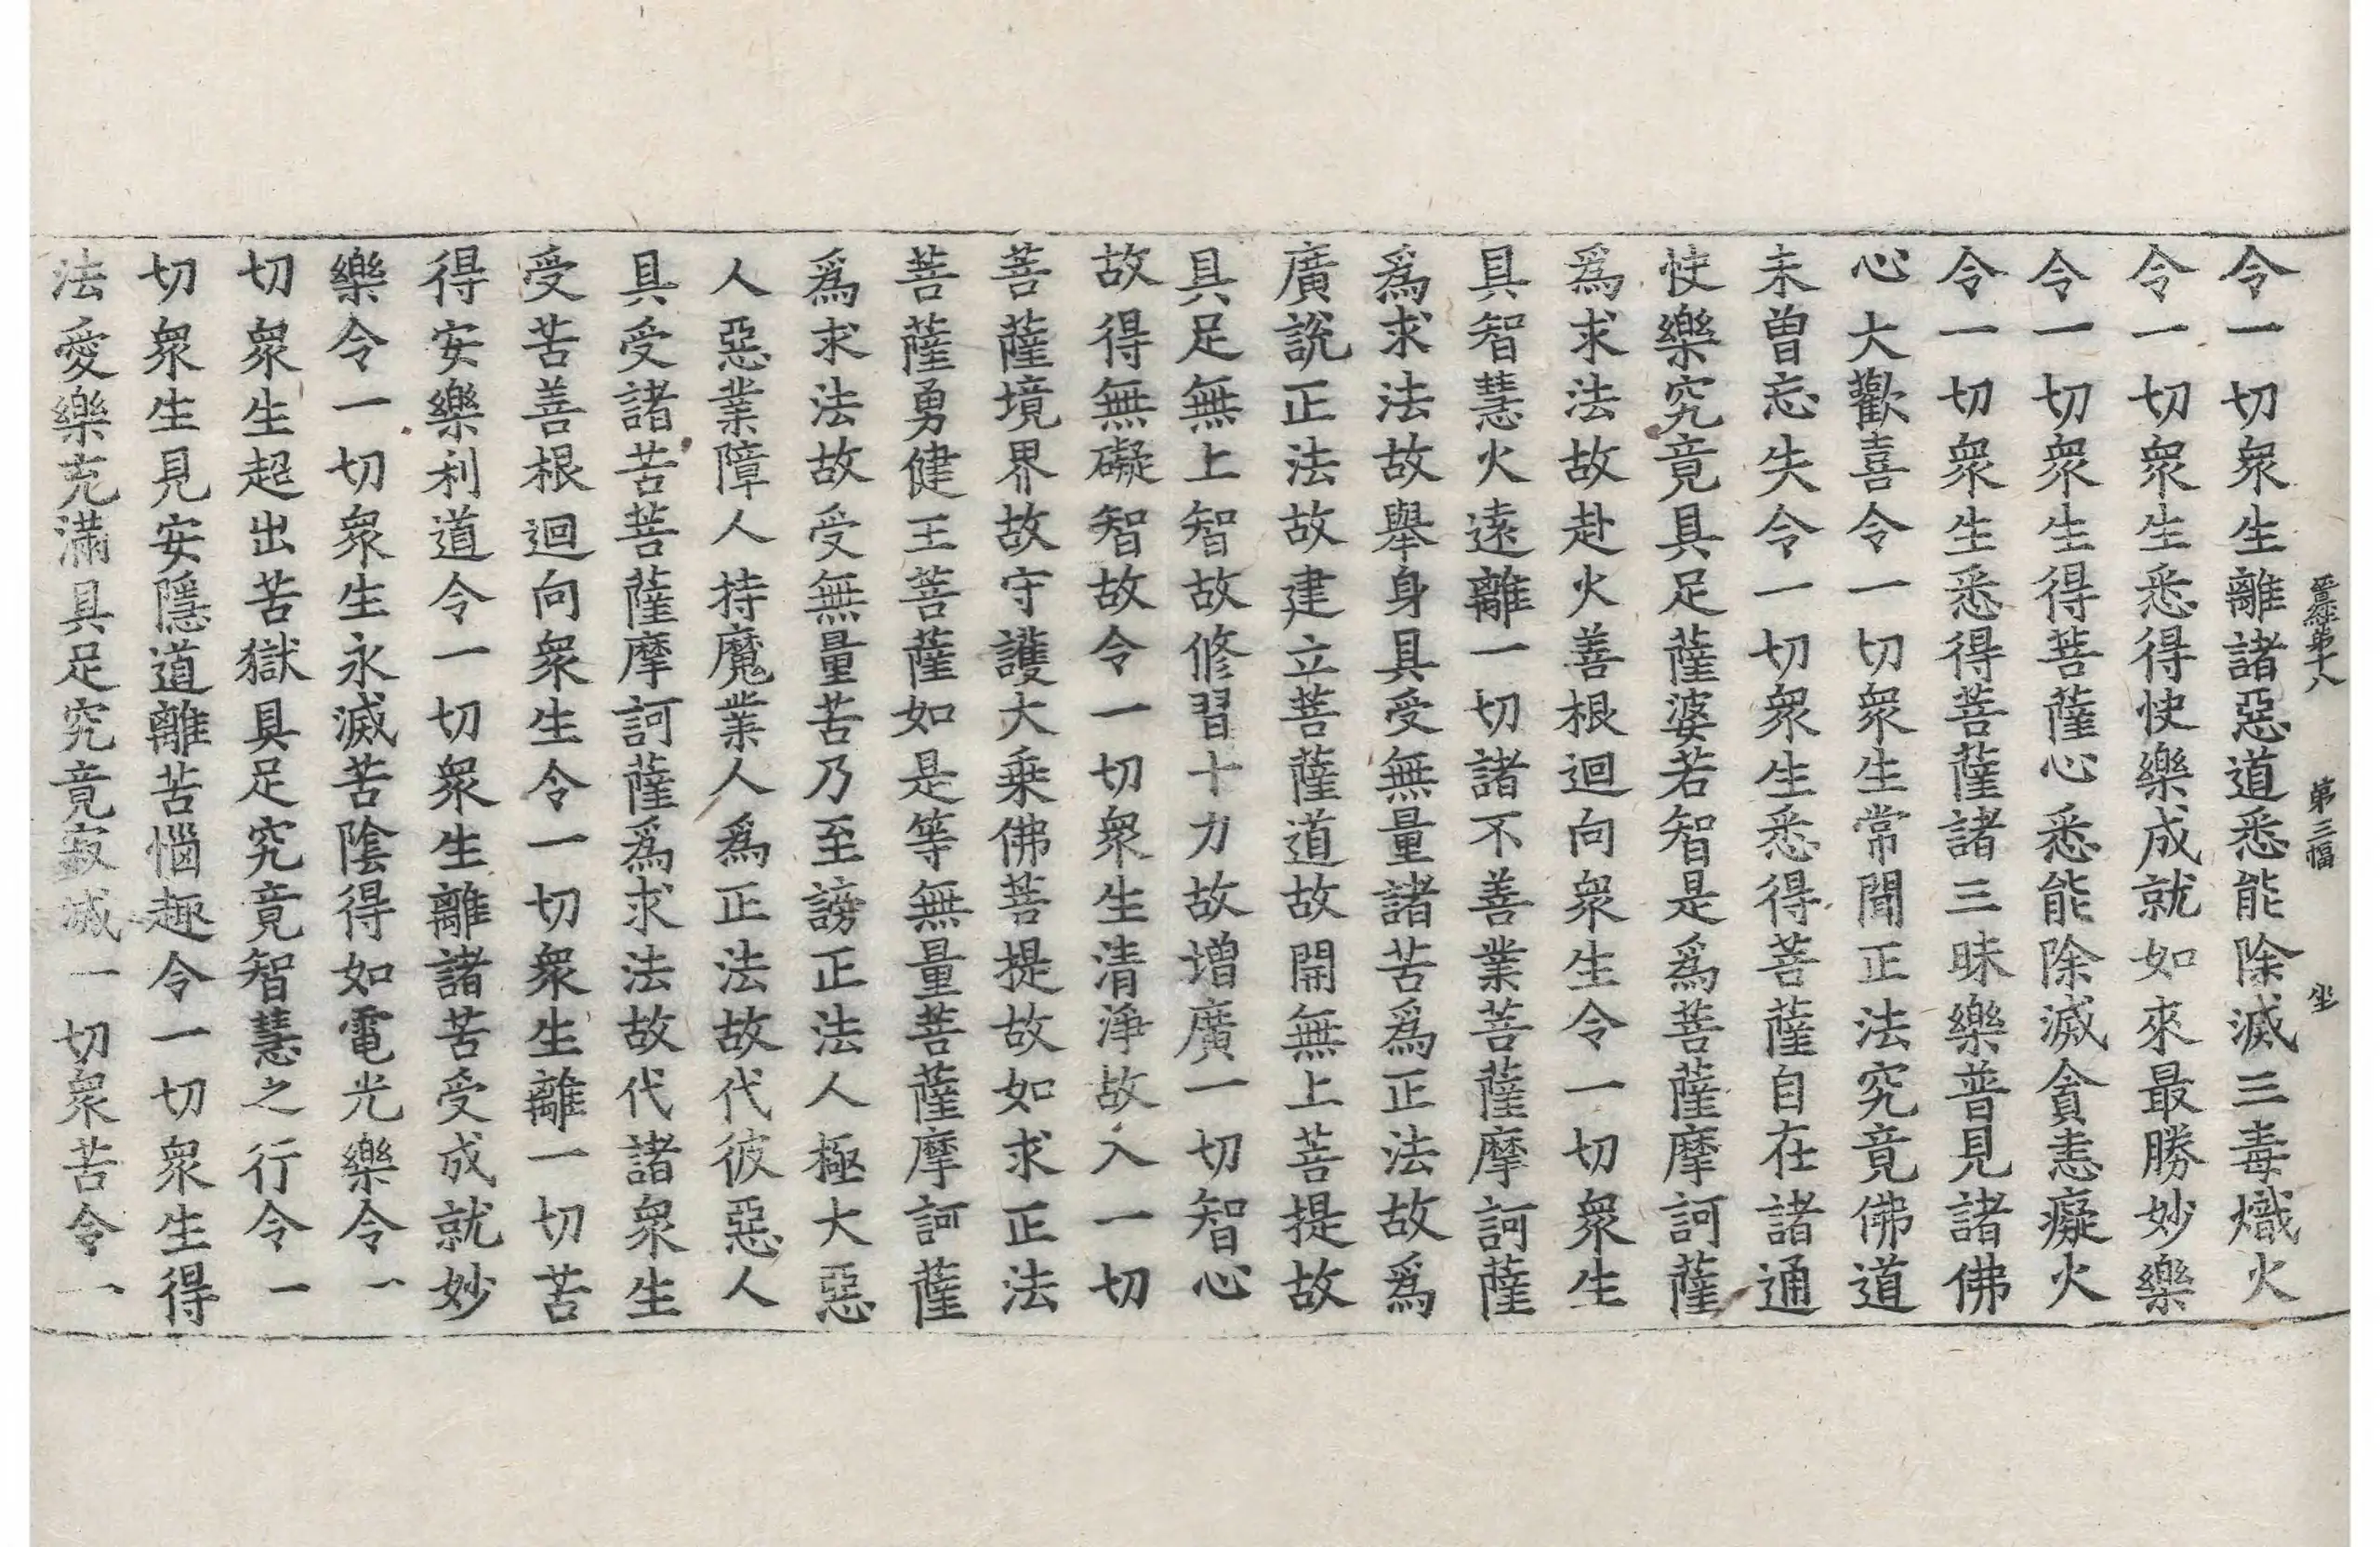 晋經第十八 第三幅 坐
令一切衆生離諸惡道悉能除滅三毒熾火
令一切衆生悉得快樂成就如來最勝妙樂
令一切衆生得菩薩心悉能除滅貪恚癡火
令一切衆生悉得菩薩諸三昧樂普見諸佛
心大歡喜令一切衆生常聞正法究竟佛道
未曽忘失令一切衆生悉得菩薩自在諸通
快樂究竟具足薩婆若智是爲菩薩摩訶薩
爲求法故赴火善根迴向衆生令一切衆生
具智慧火遠離一切諸不善業菩薩摩訶薩
爲求法故舉身具受無量諸苦爲正法故爲
廣說正法故建立菩薩道故開無上菩提故
具足無上智故修習十力故增廣一切智心
故得無礙智故令一切衆生清淨故入一切
菩薩境界故守護大乗佛菩提故如求正法
菩薩勇健王菩薩如是等無量菩薩摩訶薩
爲求法故受無量苦乃至謗正法人極大惡
人惡業障人持魔業人爲正法故代彼惡人
具受諸苦菩薩摩訶薩爲求法故代諸衆生
受苦善根迴向衆生令一切衆生離一切苦
得安樂利道令一切衆生離諸苦受成就妙
樂令一切衆生永滅苦陰得如電光樂令一
切衆生超出苦獄具足究竟智慧之行令一
切衆生見安隱道離苦惱趣令一切衆生得
法愛樂充滿具足究竟寂滅一切衆苦令一